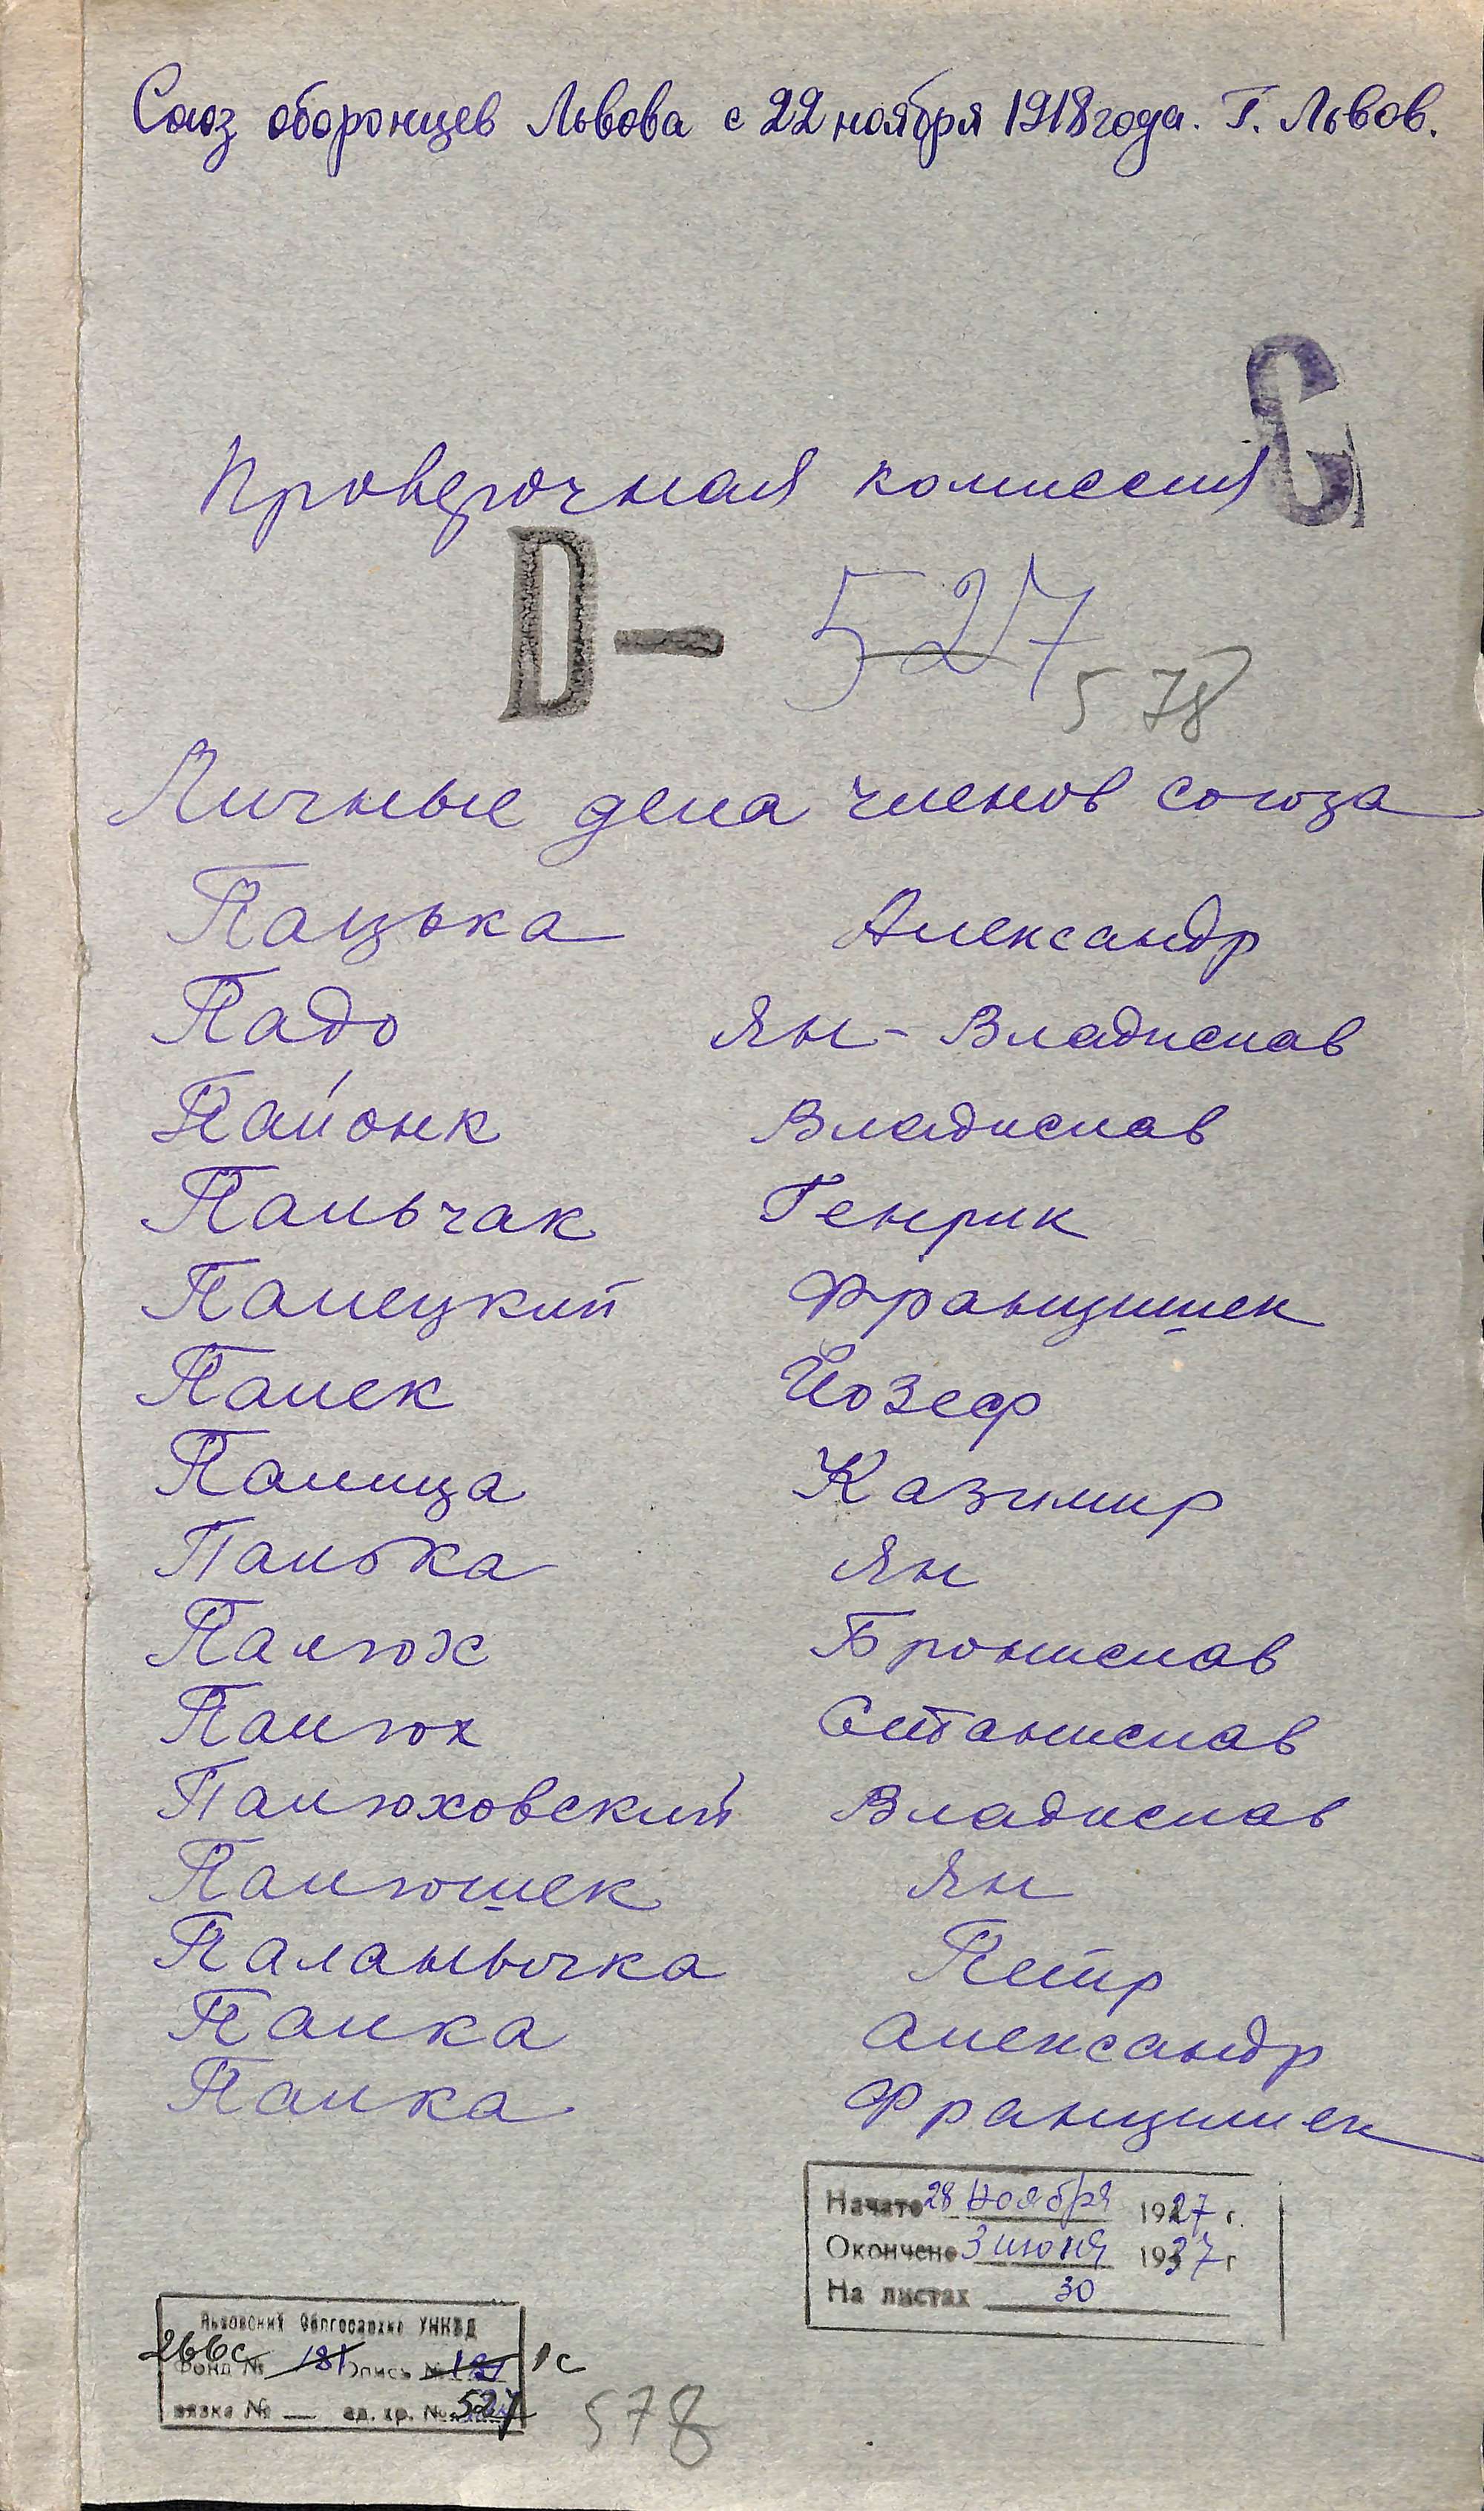 Союз оборонцев Львова с 22 ноября 1918 года. Г. Львов.
С
Проверочная комиссия
D — 527
578
Личные дела членов союза
Пацька Александр
Падо Ян-Владислав
Пайонк Владислав
Пальчак Генрик
Палецкий Францишек
Палек Йозеф
Палица Казимир
Палька Ян
Палюх Бронислав
Палюх Станислав
Палюховский Владислав
Палюшек Ян
Паланычка Петр
Палка Александр
Палка Францишек
Начато 28 ноября 1927 г.
Окончено 3 июня 1937 г
На листах 30
Львовский Облгосархив УНКВД
266с Фонд № 181 Опись № 1с
вязка № — ед. хр. № 527
578